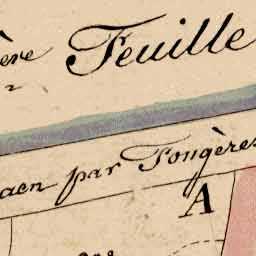 ère Feuille
aen par Fougères
A